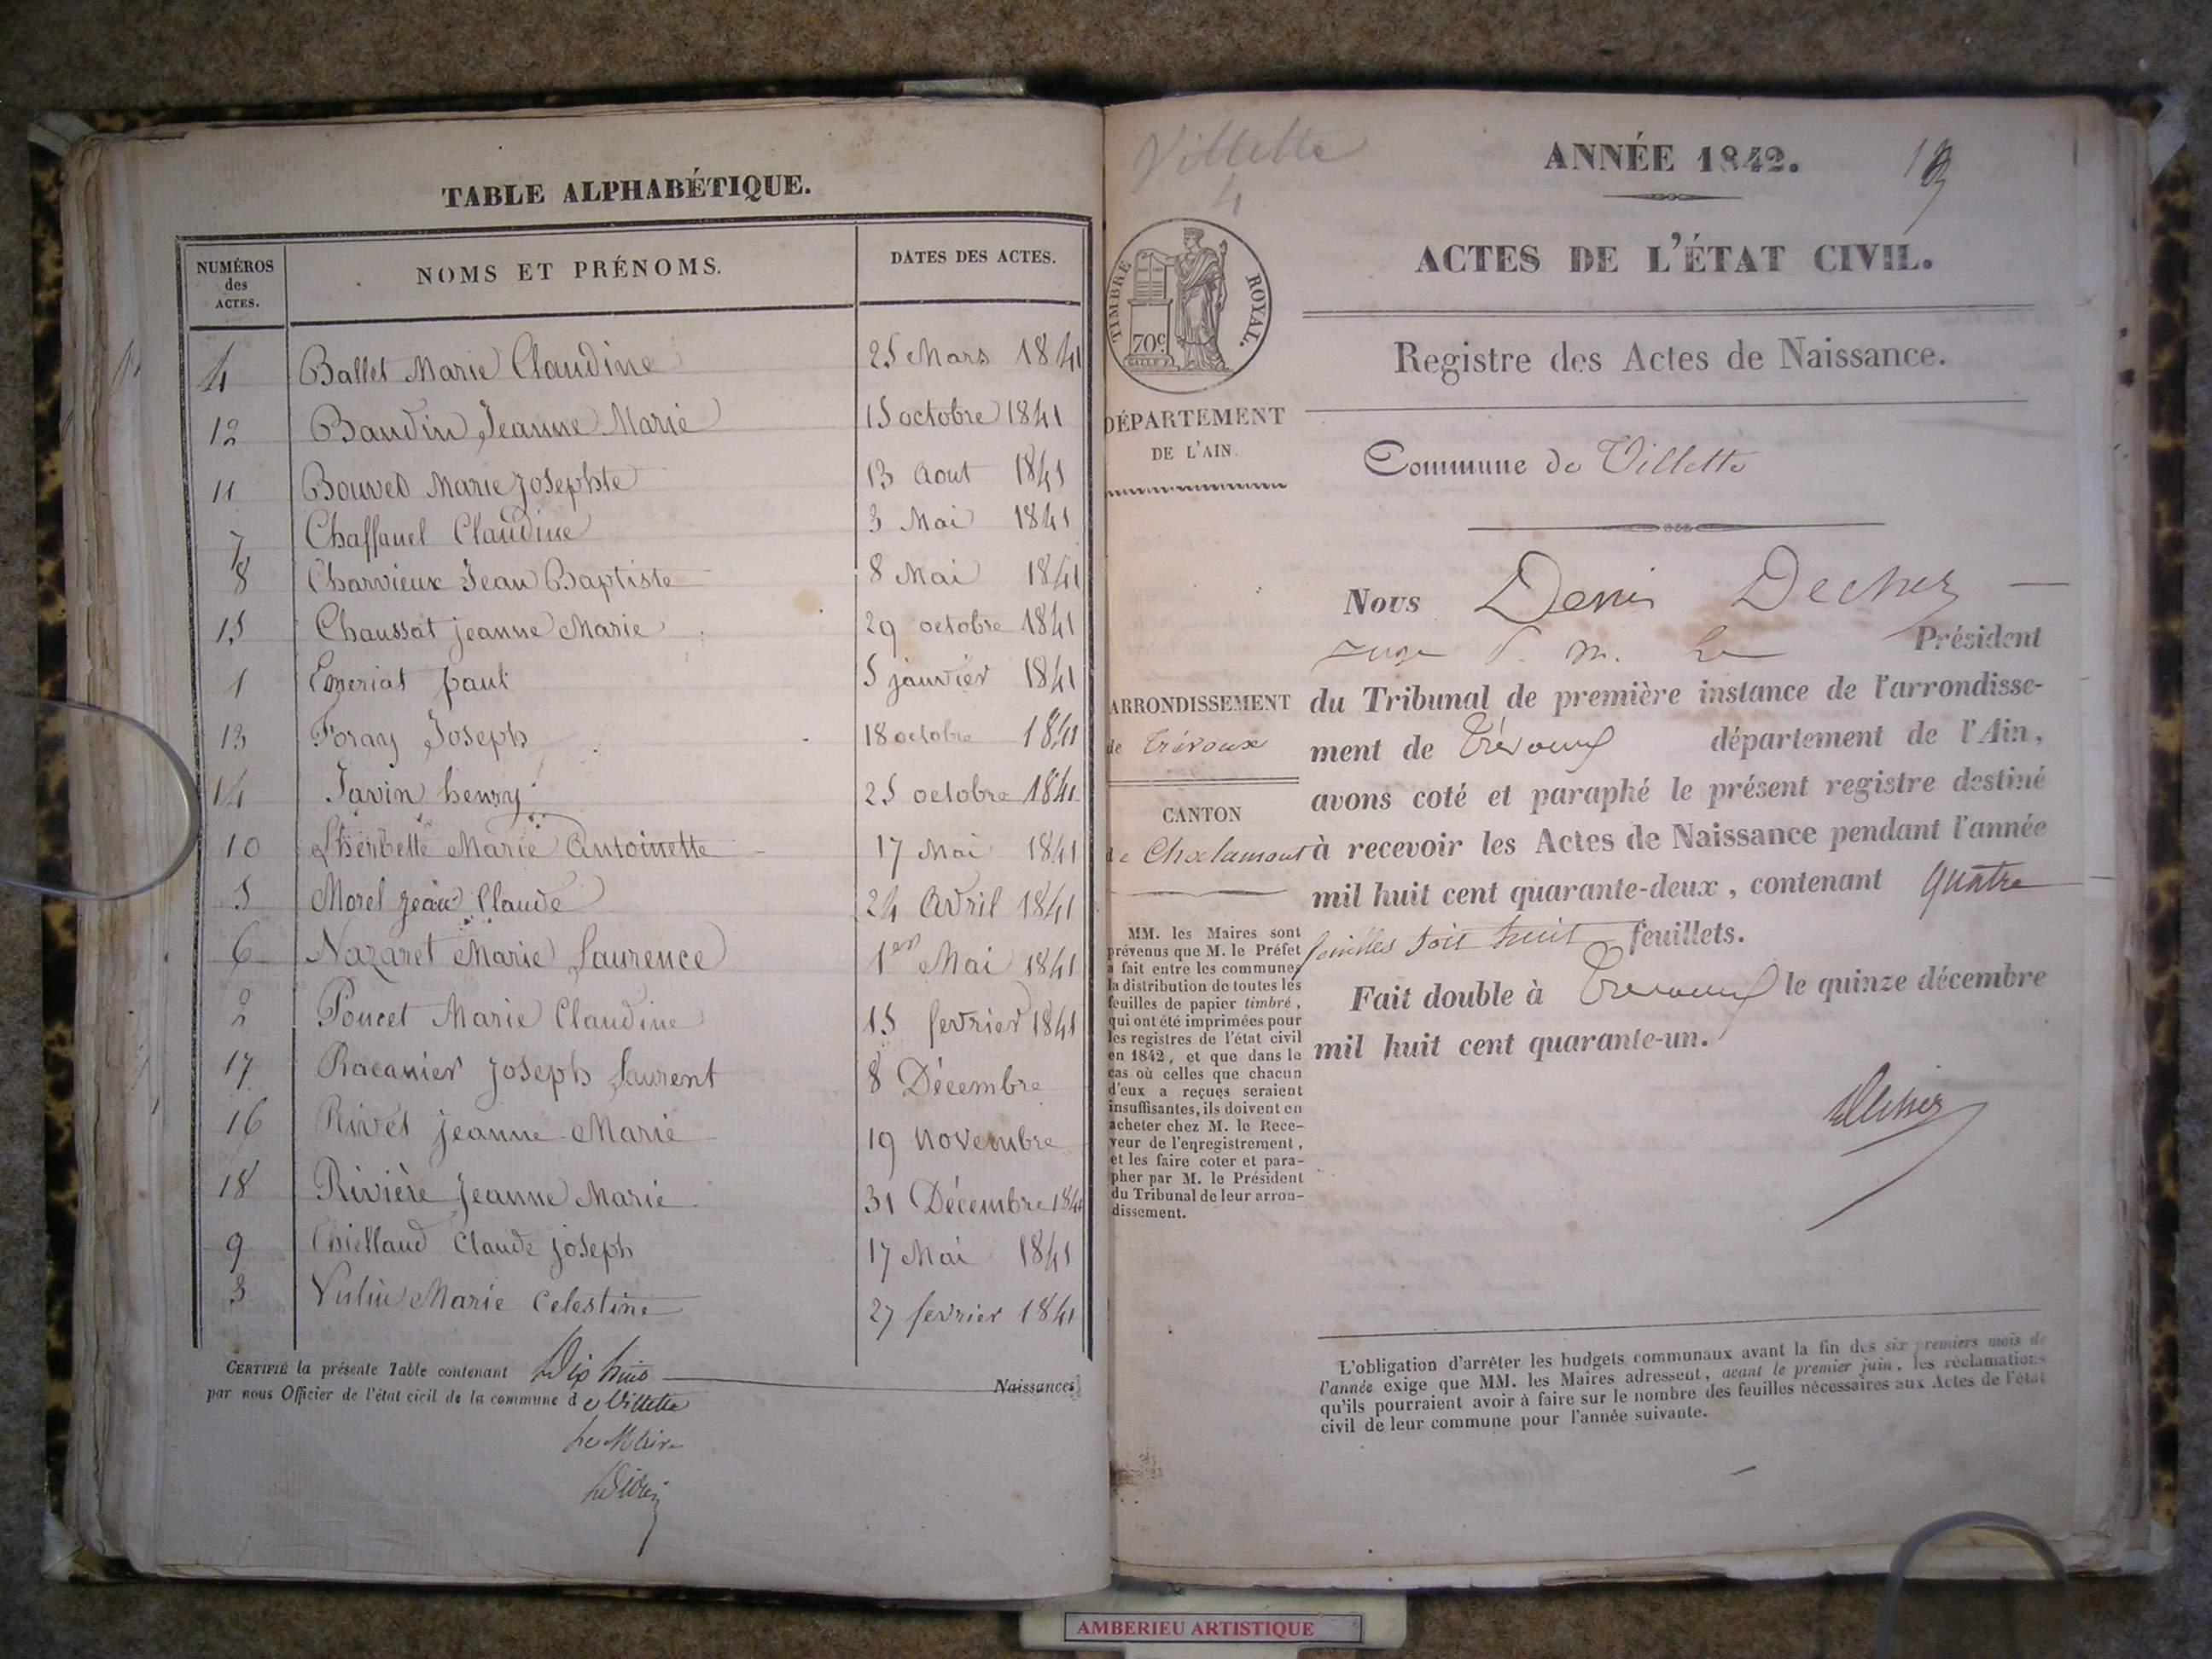 TABLE ALPHABÉTIQUE.
NUMÉROS des ACTES. NOMS ET PRÉNOMS. DATES DES ACTES.
4 Ballet Marie Claudine 25 Mars 1841
12 Baudin Jeanne Marie 15 octobre 1841
11 Bouvet Marie Josephte 13 Aout 1841
7 Chaffauel Claudine 3 Mai 1841
8 Charvieux Jean Baptiste 8 Mai 1841
15 Chaussat jeanne Marie 29 octobre 1841
1 Emeriat paul 5 janvier 1841
13 Foray Joseph 18 octobre 1841
14 Javin henry 25 octobre 1841
10 Lherbette Marie Antoinette 17 Mai 1841
5 Morel jean Claude 24 Avril 1841
6 Nazaret Marie Laurence 1er Mai 1841
2 Poncet Marie Claudine 15 fevrier 1841
17 Racanier Joseph Laurent 8 Décembre
16 Rivet jeanne Marie 19 Novembre
18 Rivière Jeanne Marie 31 Décembre 1841
9 Thiellaud Claude joseph 17 Mai 1841
3 Vulin Marie Celestine 27 fevrier 1841
CERTIFIÉ la présente Table contenant Dix huit Naissances
par nous Officier de l'état civil de la commune de Villette
Le Maire
Villette
4
ANNÉE 1842.
ACTES DE L'ÉTAT CIVIL.
TIMBRE ROYAL.
70c
Registre des Actes de Naissance.
DÉPARTEMENT
DE L'AIN.
Commune de Villette
Nous Denis
juge Président
ARRONDISSEMENT
de Trévoux
CANTON
de Chalamont
du Tribunal de première instance de l'arrondisse-
ment de Trévoux département de l'Ain,
avons coté et paraphé le présent registre destiné
à recevoir les Actes de Naissance pendant l'année
mil huit cent quarante-deux, contenant quatre
feuilles soit huit feuillets.
Fait double à Trevoux le quinze décembre
mil huit cent quarante-un.
MM. les Maires sont
prévenus que M. le Préfet
a fait entre les communes
la distribution de toutes les
feuilles de papier timbré,
qui ont été imprimées pour
les registres de l'état civil
en 1842, et que dans le
cas où celles que chacun
d'eux a reçues seraient
insuffisantes, ils doivent en
acheter chez M. le Rece-
veur de l'enregistrement,
et les faire coter et para-
pher par M. le Président
du Tribunal de leur arron-
dissement.
L'obligation d'arrêter les budgets communaux avant la fin des six premiers mois de
l'année exige que MM. les Maires adressent, avant le premier juin, les réclamations
qu'ils pourraient avoir à faire sur le nombre des feuilles nécessaires aux Actes de l'état
civil de leur commune pour l'année suivante.
AMBERIEU ARTISTIQUE